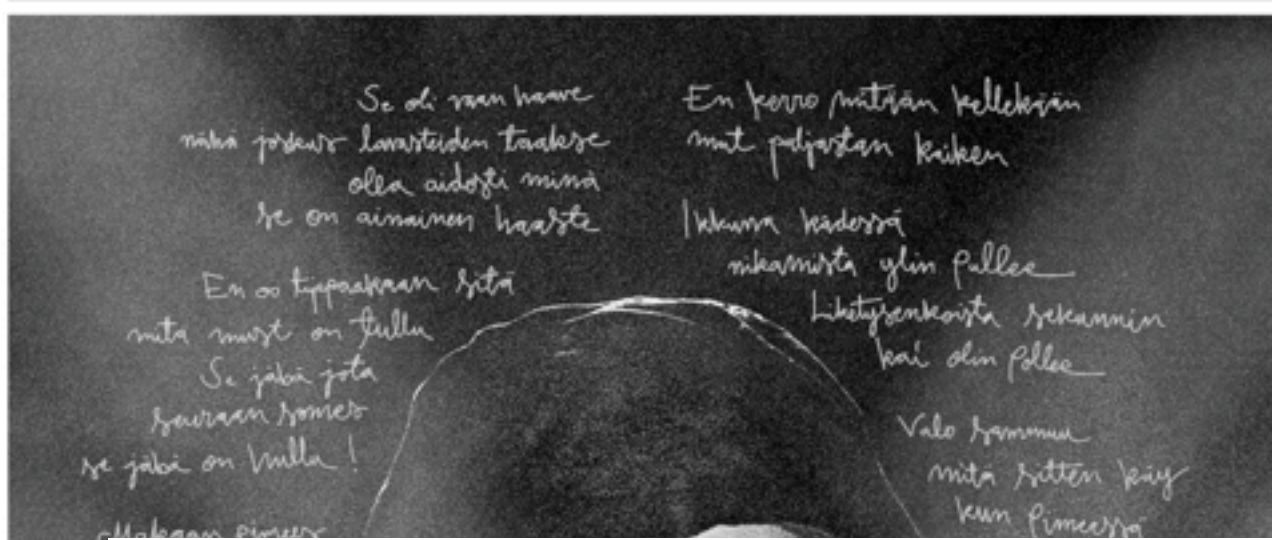 Se oli vaan haave
nähä joskus lavasteiden taakse
olla aidosti minä
se on ainainen haaste
En oo tippaakaan sitä
mitä must on tullu
Se jäbä jota
seuraan somes
se jäbä on hullu!
Makaan pimees
En kerro mitään kellekään
mut paljastan kaiken
Ikkuna kädessä
nikamista ylin pullee
Liketysenkoista sekunnin
kai olin pollee
Valo sammuu
mitä sitten käy
kun pimeässä